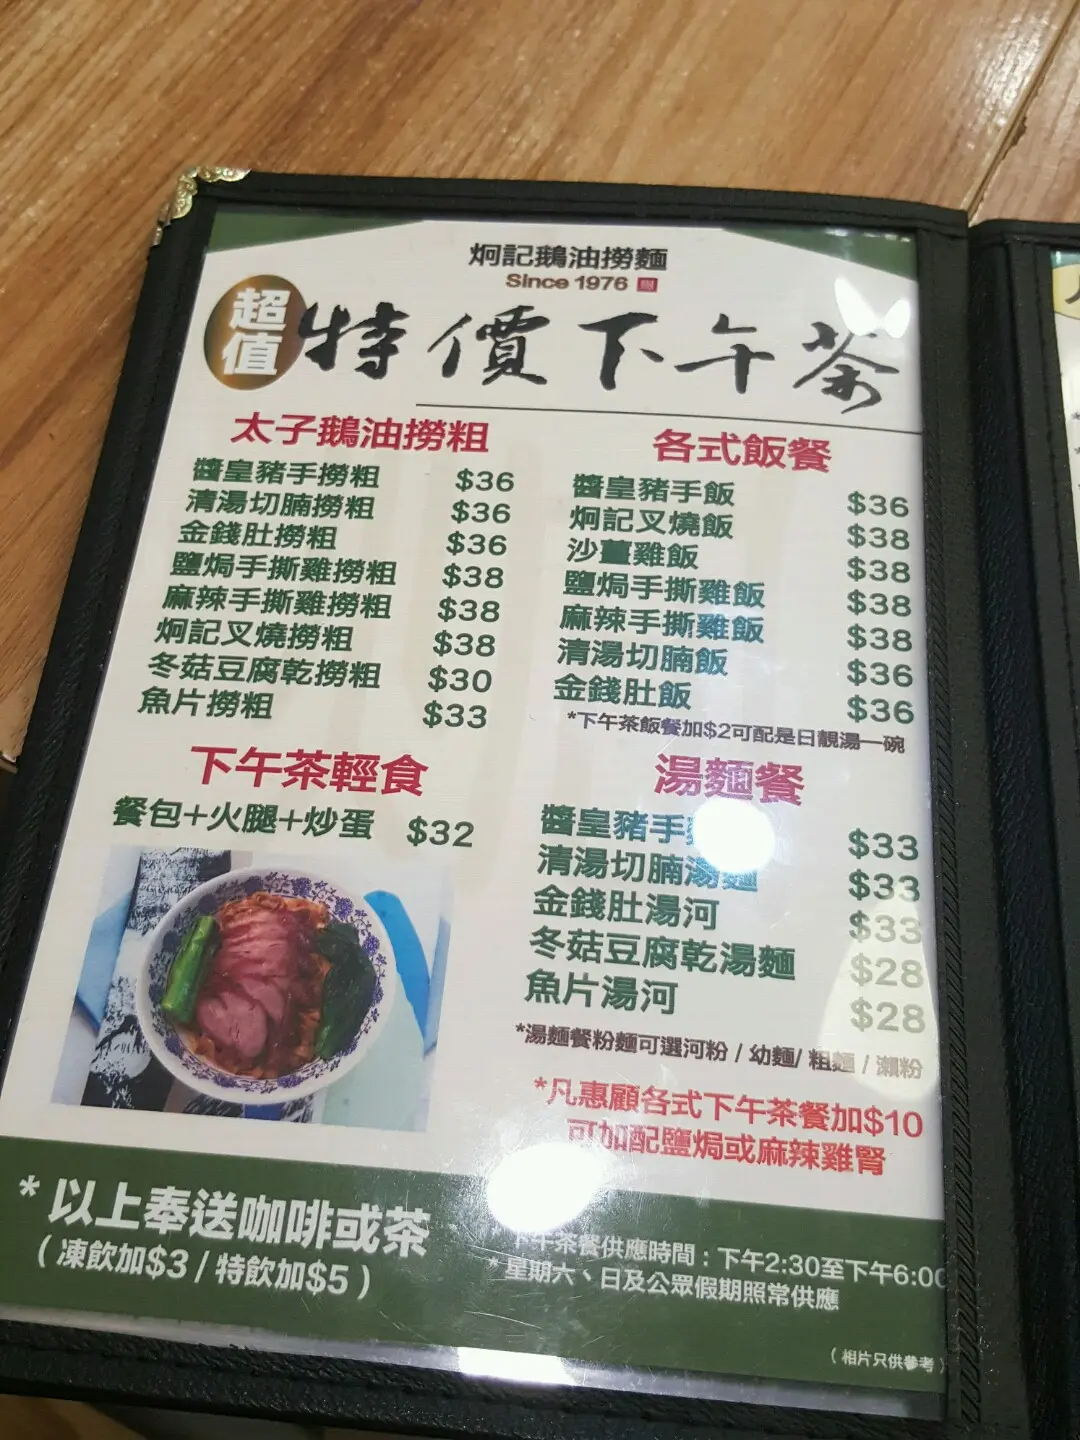 炯記鵝油撈麵
Since 1976
超值
特價下午茶
太子鵝油撈粗
醬皇豬手撈粗 $36
清湯切腩撈粗 $36
金錢肚撈粗 $36
鹽焗手撕雞撈粗 $38
麻辣手撕雞撈粗 $38
炯記叉燒撈粗 $38
冬菇豆腐乾撈粗 $30
魚片撈粗 $33
下午茶輕食
餐包+火腿+炒蛋 $32
各式飯餐
醬皇豬手飯 $36
炯記叉燒飯 $38
沙薑雞飯 $38
鹽焗手撕雞飯 $38
麻辣手撕雞飯 $38
清湯切腩飯 $36
金錢肚飯 $36
*下午茶飯餐加$2可配是日靚湯一碗
湯麵餐
醬皇豬手 $33
清湯切腩湯麵 $33
金錢肚湯河 $33
冬菇豆腐乾湯麵 $28
魚片湯河 $28
*湯麵餐粉麵可選河粉 / 幼麵/ 粗麵 / 瀨粉
*凡惠顧各式下午茶餐加$10
可加配鹽焗或麻辣雞腎
* 以上奉送咖啡或茶
( 凍飲加$3 / 特飲加$5 )
下午茶餐供應時間 : 下午2:30至下午6:00
* 星期六、日及公眾假期照常供應
( 相片只供參考 )